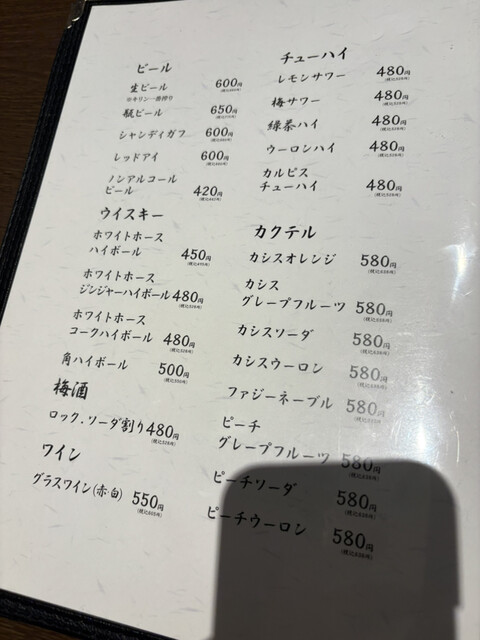 ビール
生ビール 600円
(税込660円)
※キリン一番搾り
瓶ビール 650円
(税込715円)
シャンディガフ 600円
(税込660円)
レッドアイ 600円
(税込660円)
ノンアルコール
ビール 420円
(税込462円)
ウイスキー
ホワイトホース
ハイボール 450円
(税込495円)
ホワイトホース
ジンジャーハイボール 480円
(税込528円)
ホワイトホース
コークハイボール 480円
(税込528円)
角ハイボール 500円
(税込550円)
梅酒
ロック.ソーダ割り 480円
(税込528円)
ワイン
グラスワイン(赤白) 550円
(税込605円)
チューハイ
レモンサワー 480円
(税込528円)
梅サワー 480円
(税込528円)
緑茶ハイ 480円
(税込528円)
ウーロンハイ 480円
(税込528円)
カルピス
チューハイ 480円
(税込528円)
カクテル
カシスオレンジ 580円
(税込638円)
カシス
グレープフルーツ 580円
(税込638円)
カシスソーダ 580円
(税込638円)
カシスウーロン 580円
(税込638円)
ファジーネーブル 580円
(税込638円)
ピーチ
グレープフルーツ 580円
(税込638円)
ピーチソーダ 580円
(税込638円)
ピーチウーロン 580円
(税込638円)